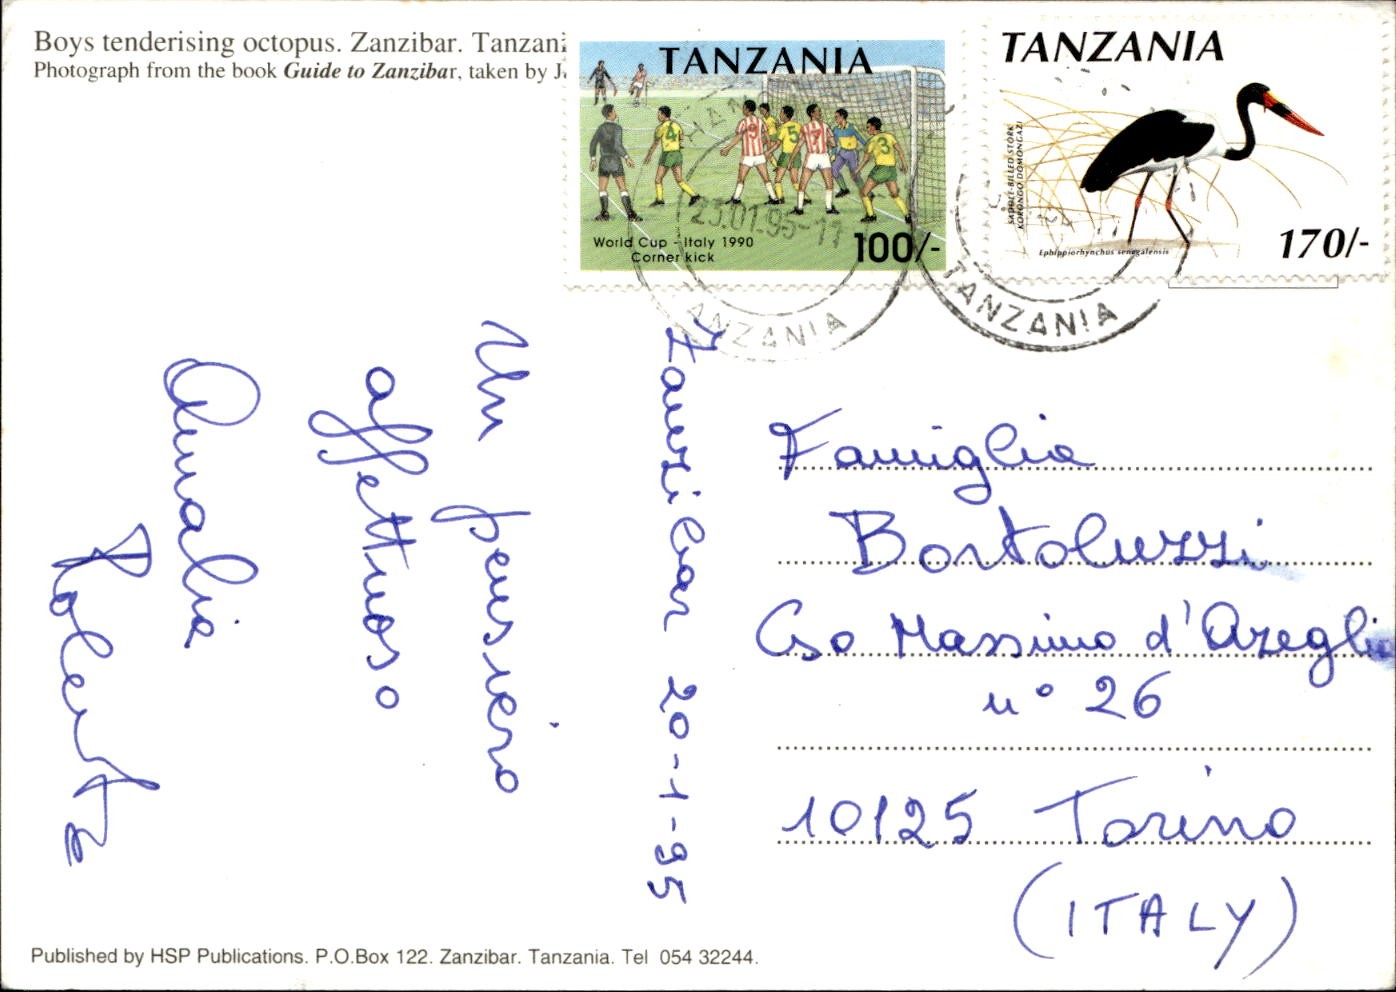 Boys tenderising octopus. Zanzibar. Tanzani
Photograph from the book Guide to Zanzibar, taken by J.
TANZANIA
World Cup - Italy 1990
Corner kick
100/-
TANZANIA
SADDLE-BILLED STORK
KORONGO DOMONGAZI
Ephippiorhynchus senegalensis
170/-
23.01.95-11
TANZANIA
TANZANIA
Zanzibar 20-1-95
Un pensiero
affettuoso
Amalia
Famiglia
Bortoluzzi
Cso Massimo d'Azeglio
n° 26
10125 Torino
(ITALY)
Published by HSP Publications. P.O.Box 122. Zanzibar. Tanzania. Tel 054 32244.